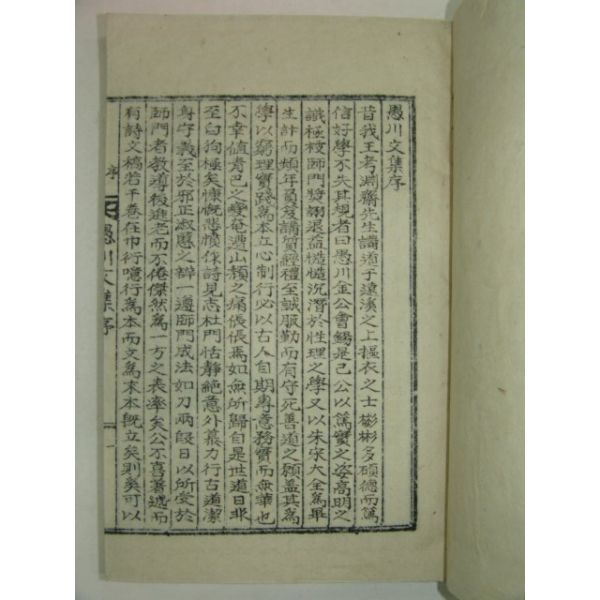 愚川文集序
昔我王考淵齋先生講道于遠溪之上摳衣之士彬彬多碩德而篤
信好學不失其規者曰愚川金公會錫是已公以篤實之姿高明之
識極被師門奬詡退益慥慥沉潛於性理之學又以朱張大全爲畢
生計而頻年負笈講質經禮至誠服勤而有守死善道之願蓋其爲
學以窮理實踐爲本立心制行必以古人自期專意務實而無華也
不幸値青巳之變奄遭山頹之痛倀倀焉如無所歸自是世道日非
至白狗極矣慷慨悲憤作詩見志杜門恬靜絶意外慕力行古道潔
身守義至於邪正淑慝之辨一遵師門成法如刀兩段日以所受於
師門者敎導後進老而不倦傑然爲一方之表率矣公不喜著述而
有詩文稿若干卷在巾衍噫行爲本而文爲末本旣立矣則奚可以
序
愚川文集序
一